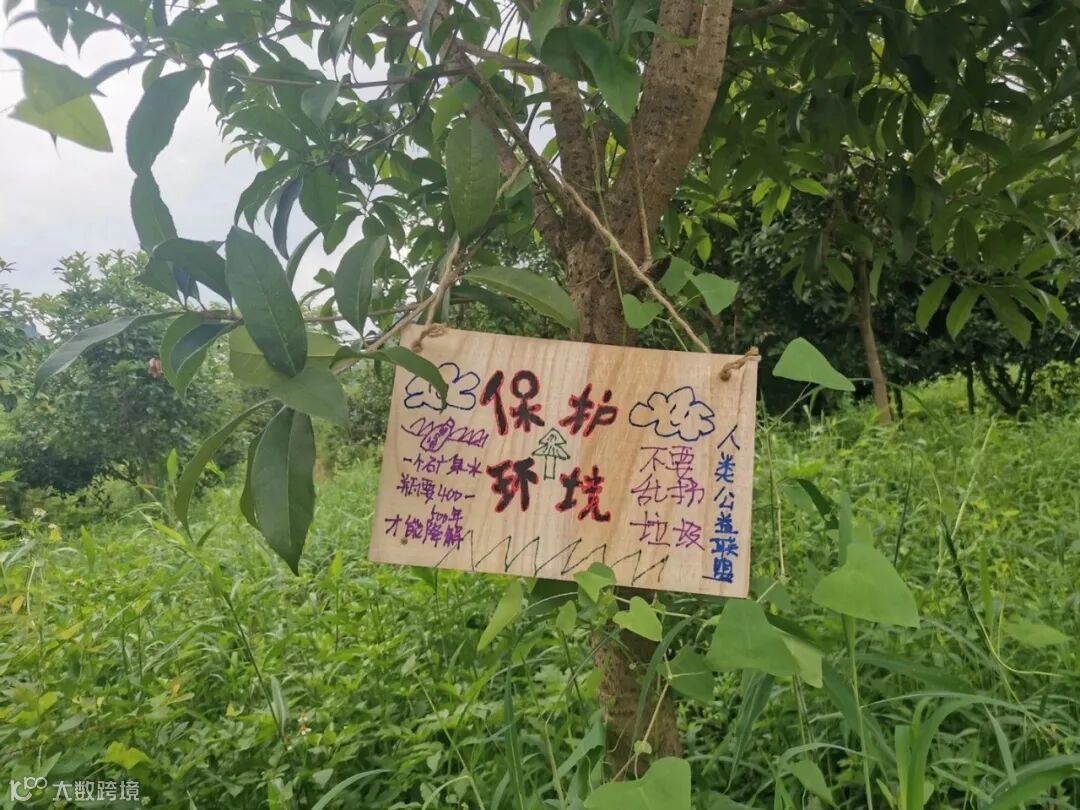 保护
环境
一个矿泉水
瓶要400-
500年
才能降解
不要
乱扔
垃圾
人类公益联盟
大数跨境